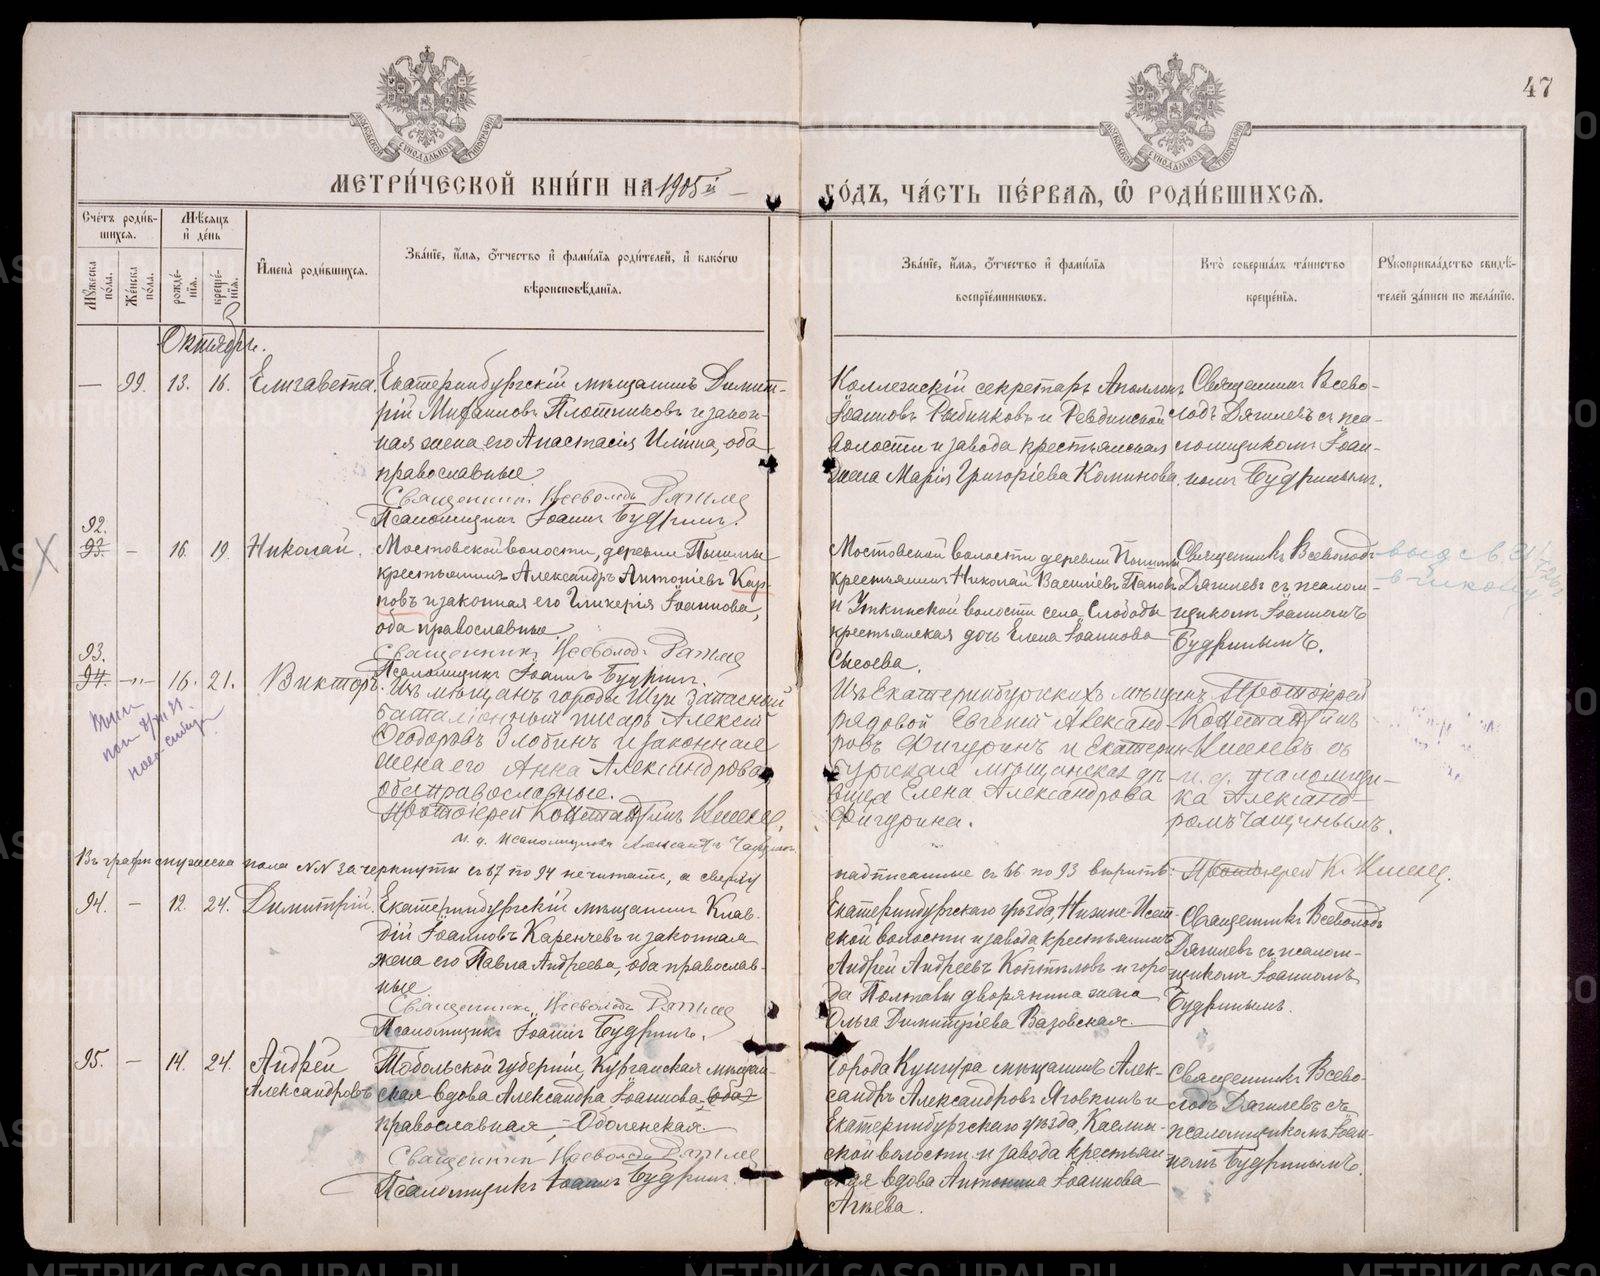 47
МЕТРИ́ЧЕСКОЙ КНИ́ГИ НА 1905й
ГО́ДЪ, ЧА́СТЬ ПЕ́РВАЯ, Ѽ РОДИ́ВШИХСЯ.
Сче́тъ роди́в-
шихся.
Мѣ́сяцъ
и́ де́нь
Мꙋ́жеска по́ла.
Же́нска по́ла.
рожде́-
нїя.
креще́-
нїя.
И҆мена̀ роди́вшихся.
Зва́нїе, и҆́мя, ѻ҆́тчество и҆ фами́лїя роди́телей, и҆ како́гѡ
вѣроисповѣ́данїя.
Зва́нїе, и҆́мя, ѻ҆́тчество и҆ фами́лїя
воспрїе́мникѡвъ.
Кто̀ соверша́лъ та́инство
креще́нїя.
Рꙋкоприкла́дство свидѣ́-
телей за́писи по жела́нїю.
Октябрь.
— 99. 13. 16. Елизавета.
Екатеринбургскій мѣщанинъ Димит-
рій Михаиловъ Плотниковъ и закон-
ная жена его Анастасія Ильина, оба
православные
Священникъ Всеволодъ Дягилев
Псаломщикъ Іоаннъ Будринъ.
Коллежскій секретарь Аполлонъ
Іоанновъ Рыбниковъ и Ревдинской
волости и завода крестьянская
жена Марія Григоріева Коминова.
Священникъ Всево-
лодъ Дягилевъ съ пса-
ломщикомъ Іоан-
номъ Будринымъ.
92.
93. — 16. 19. Николай.
Мостовской волости, деревни Пышмы
крестьянинъ Александръ Антоніевъ Кар-
повъ и законная его Гликерія Іоаннова,
оба православные
Священникъ Всеволодъ Дягилев
Псаломщикъ Іоаннъ Будринъ.
Мостовской волости деревни Пышмы
крестьянинъ Николай Василіевъ Пановъ
и Уткинской волости села Слободы
крестьянская дочь Елена Іоаннова
Сысоева.
Священникъ Всеволодъ
Дягилевъ съ псалом-
щикомъ Іоанномъ
Будринымъ.
93.
94. —"— 16. 21. Викторъ.
Изъ мѣщанъ города Шуи запасный
баталіонный писарь Алексій
Ѳеодоровъ Злобинъ и законная
жена его Анна Александрова,
оба православные.
Протоіерей Константинъ
и. д. псаломщика Александръ
Изъ Екатеринбургскихъ мѣщанъ
рядовой Евгеній Александ-
ровъ Фигуринъ и Екатерин-
бургская мѣщанская дѣ-
вица Елена Александрова
Фигурина.
Протоіерей
Константинъ
съ
и. д. псаломщи-
ка Александ-
ромъ Чащинымъ.
Въ графѣ мужеска пола №№ зачеркнуты съ 67 по 94 не читать, а сверху
надписанные съ 66 по 93 вѣрить. Протоіерей К.
94. — 12. 24. Димитрій.
Екатеринбургскій мѣщанинъ Клав-
дій Іоанновъ Каренчевъ и законная
жена его Павла Андреева, оба православ-
ные
Священникъ Всеволодъ Дягилев
Псаломщикъ Іоаннъ Будринъ.
Екатеринбургскаго уѣзда, Нижне-Исет-
ской волости и завода крестьянинъ
Андрей Андреевъ Копыловъ и горо-
да Полтавы дворянина жена
Ольга Димитріева Вазовская.
Священникъ Всеволодъ
Дягилевъ съ псалом-
щикомъ Іоанномъ
Будринымъ.
95. — 14. 24. Андрей
Александровъ
Тобольской губерніи, Курганская мѣщан-
ская вдова Александра Іоаннова, оба
православная, — Оболенская.
Священникъ Всеволодъ Дягилев
Псаломщикъ Іоаннъ Будринъ.
Города Кунгура мѣщанинъ Алек-
сандръ Александровъ Яговкинъ и
Екатеринбургскаго уѣзда, Каслин-
ской волости и завода крестьян-
ская вдова Антонина Іоаннова
Агѣева.
Священникъ Всево-
лодъ Дягилевъ съ
псаломщикомъ Іоан-
номъ Будринымъ.